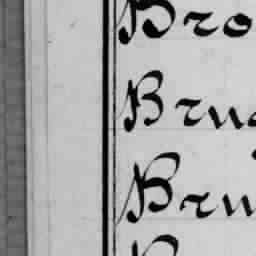 Bro
Brug
Bru
B